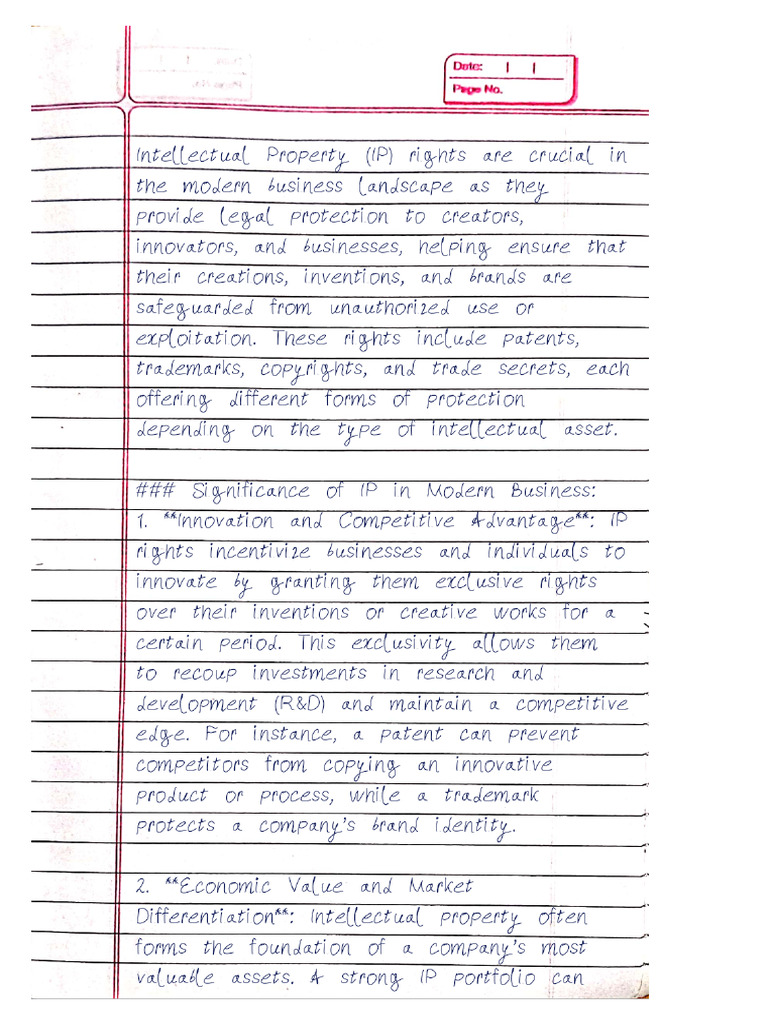 Date: | |
Page No.
Intellectual Property (IP) rights are crucial in
the modern business landscape as they
provide legal protection to creators,
innovators, and businesses, helping ensure that
their creations, inventions, and brands are
safeguarded from unauthorized use or
exploitation. These rights include patents,
trademarks, copyrights, and trade secrets, each
offering different forms of protection
depending on the type of intellectual asset.
### Significance of IP in Modern Business:
1. **Innovation and Competitive Advantage**: IP
rights incentivize businesses and individuals to
innovate by granting them exclusive rights
over their inventions or creative works for a
certain period. This exclusivity allows them
to recoup investments in research and
development (R&D) and maintain a competitive
edge. For instance, a patent can prevent
competitors from copying an innovative
product or process, while a trademark
protects a company's brand identity.
2. **Economic Value and Market
Differentiation**: Intellectual property often
forms the foundation of a company's most
valuable assets. A strong IP portfolio can